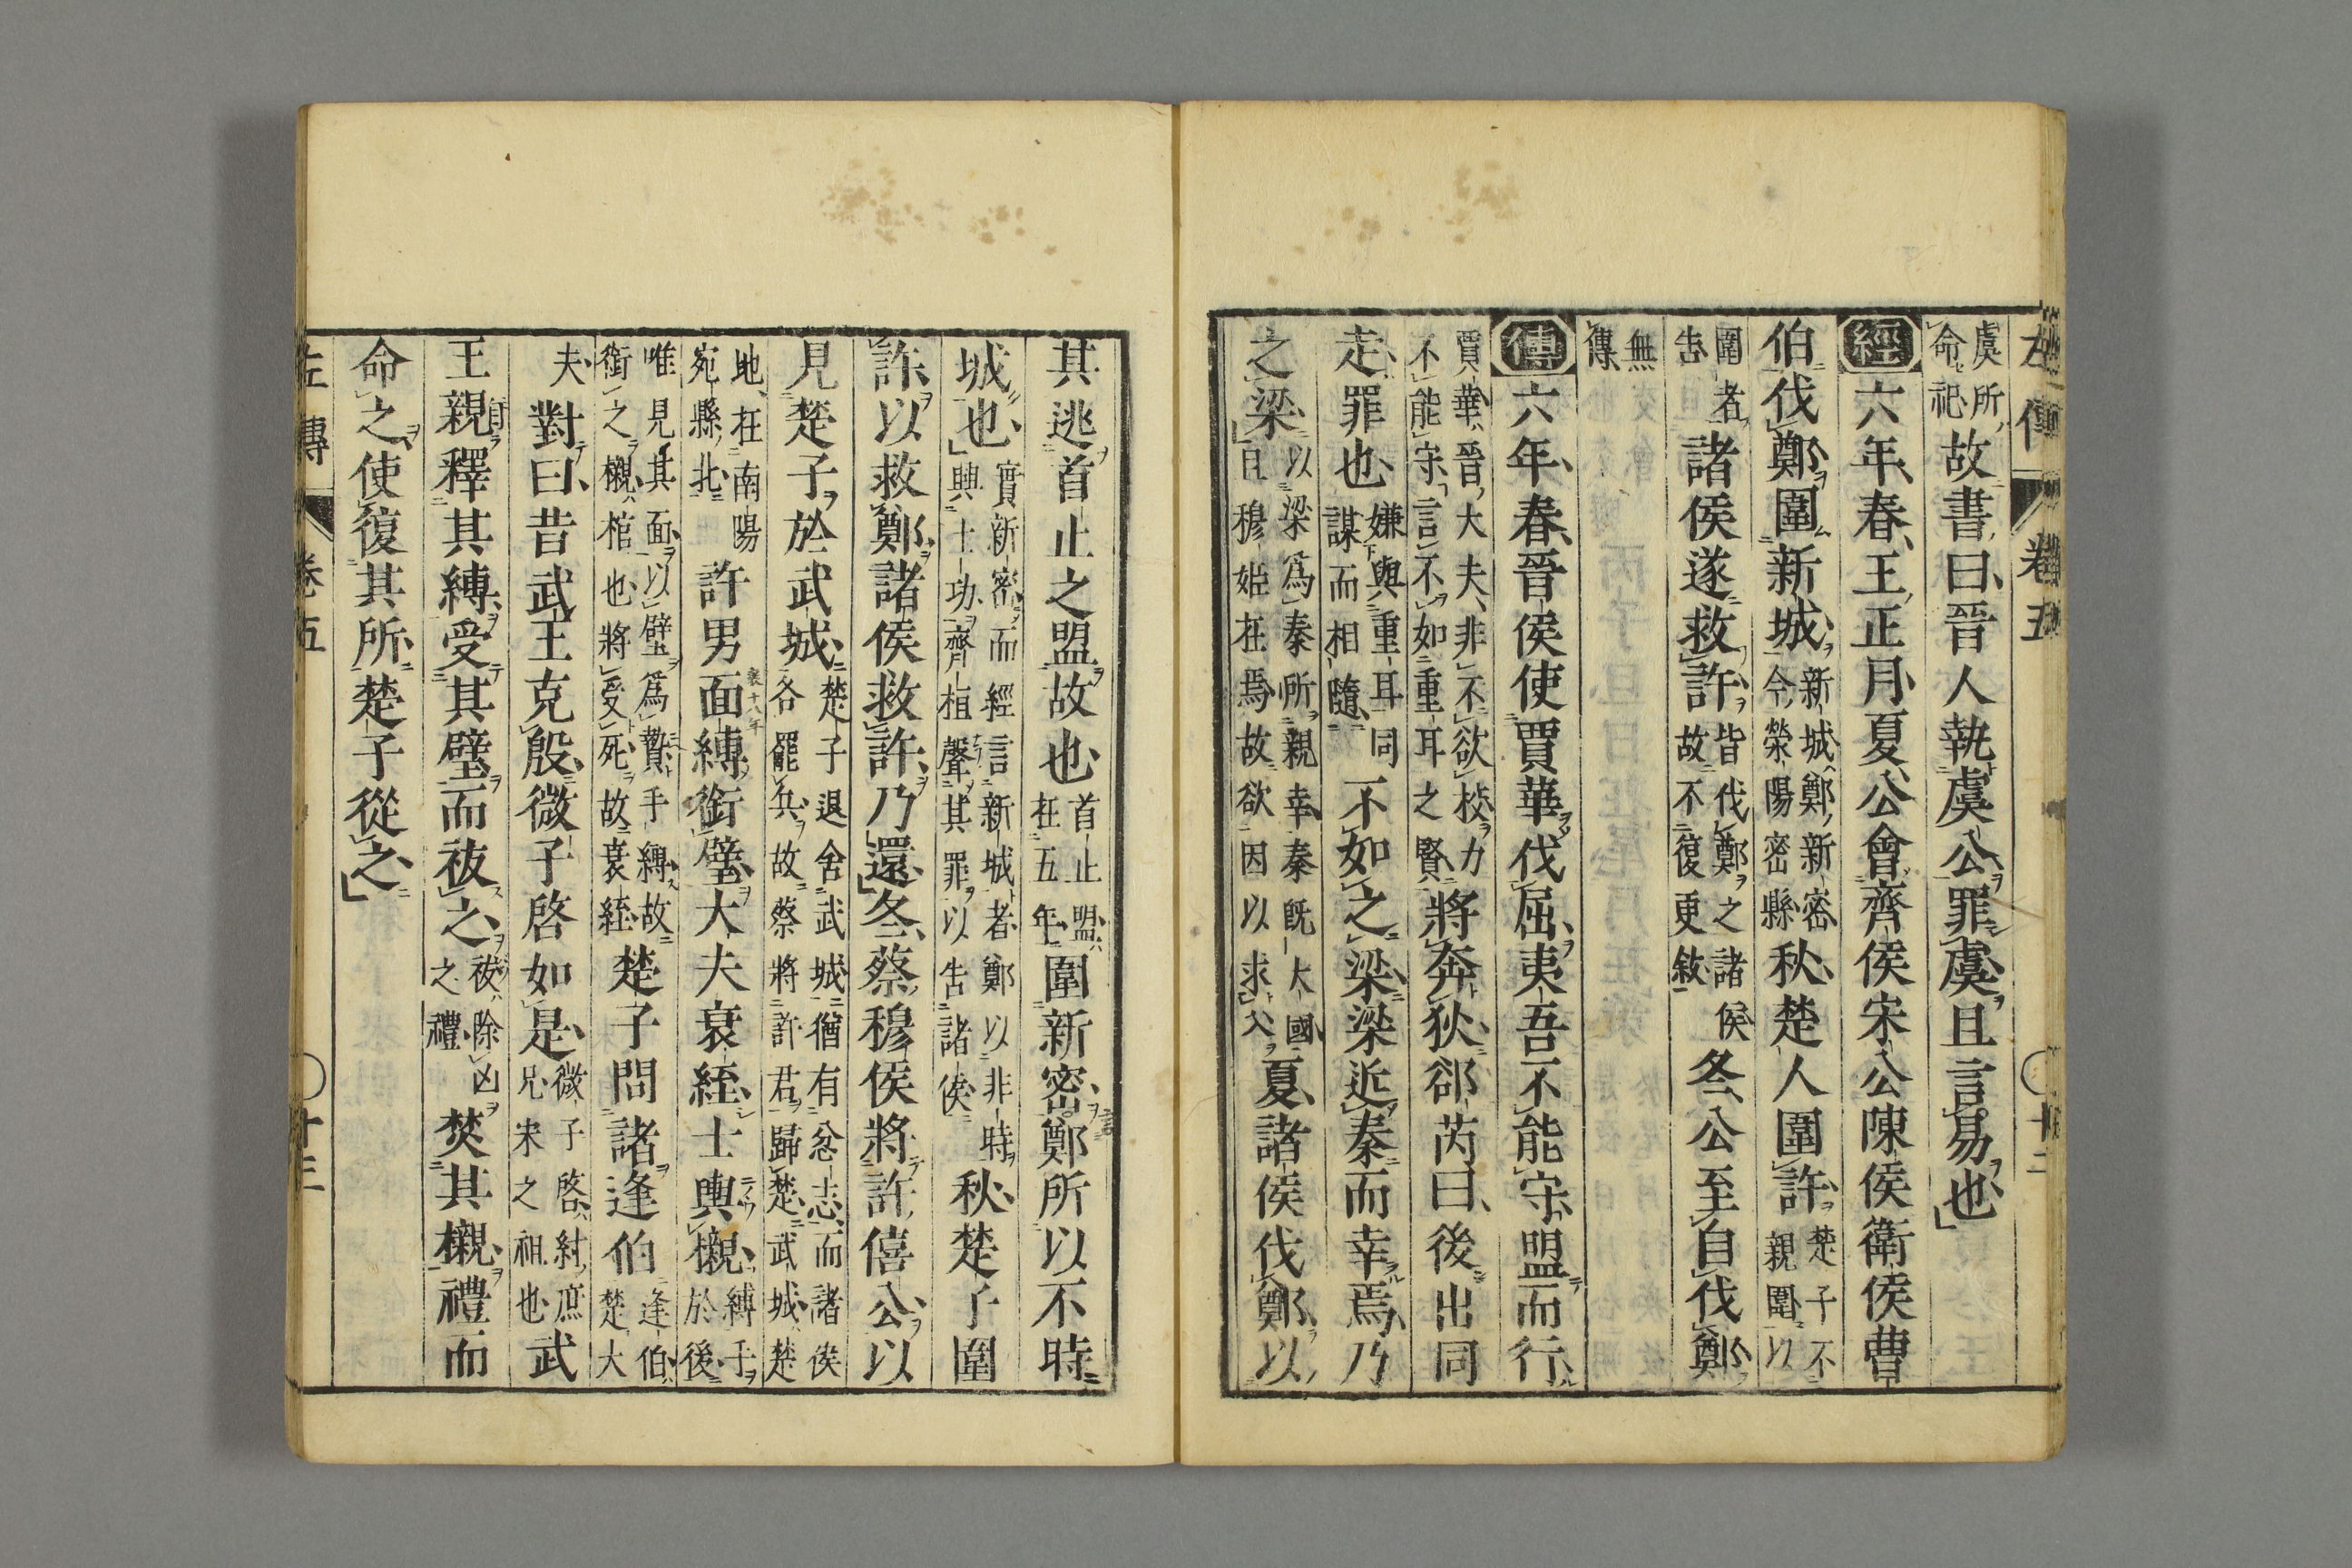 左傳 卷五 十二
虞所命祀故書曰晉人執虞公罪虞且言易也
經六年春王正月夏公會齊侯宋公陳侯衛侯曹
伯伐鄭圍新城新城鄭新密今滎陽密縣秋楚人圍許楚子不親圍以
圍者告諸侯遂救許皆伐鄭之諸侯故不復更敘冬公至自伐鄭
無傳
傳六年春晉侯使賈華伐屈夷吾不能守盟而行
賈華晉大夫非不欲校力不能守言不如重耳之賢將奔狄郤芮曰後出同
走罪也嫌與重耳同謀而相隨不如之梁梁近秦而幸焉乃
之梁以梁爲秦所親幸秦既大國且穆姬在焉故欲因以求入夏諸侯伐鄭以
其逃首止之盟故也首止盟在五年圍新密鄭所以不時
城也實新密而經言新城者鄭以非時興土功齊桓聲其罪以告諸侯秋楚子圍
許以救鄭諸侯救許乃還冬蔡穆侯將許僖公以
見楚子於武城楚子退舍武城猶有忿志而諸侯各罷兵故蔡將許君歸楚武城楚
地在南陽宛縣北許男面縛銜璧大夫衰絰士輿櫬縛手於後
唯見其面以璧爲贄手縛故銜之櫬棺也將受死故衰絰楚子問諸逢伯逢伯楚大
夫對曰昔武王克殷微子啓如是微子啓紂庶兄宋之祖也武
王親釋其縛受其璧而祓之祓除凶之禮焚其櫬禮而
命之使復其所楚子從之
左傳 卷五 十三